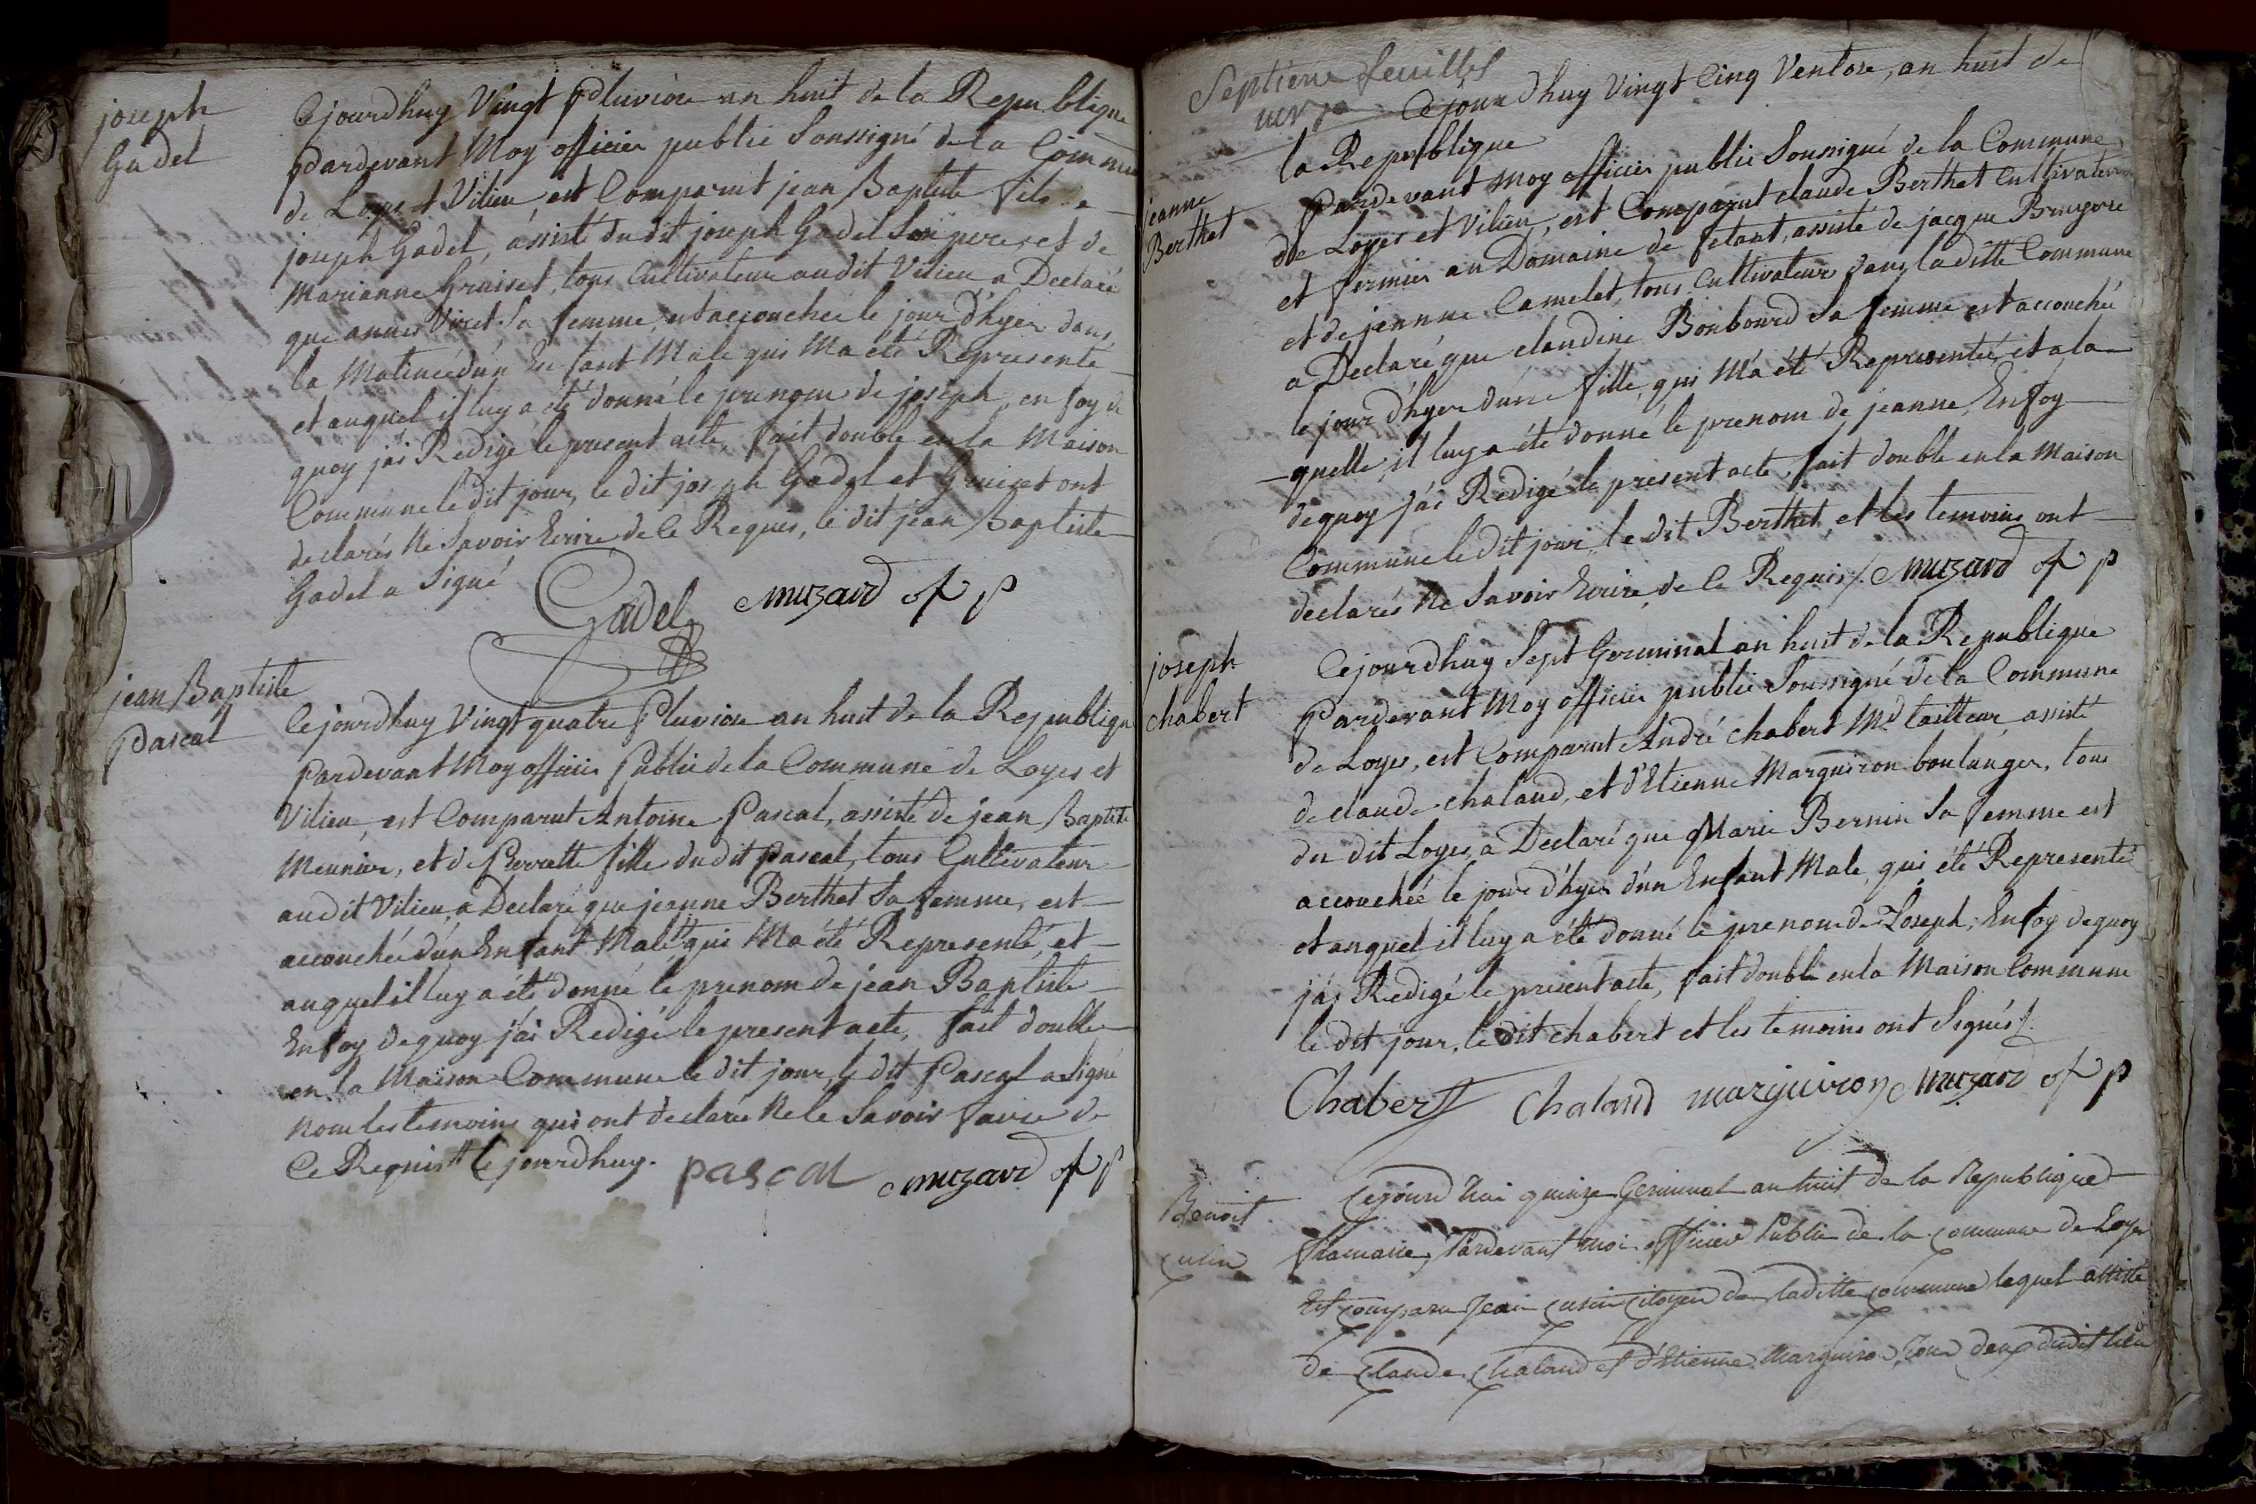 joseph
Gadel
Cejourdhuy Vingt Pluviose an huit de la Republique
Pardevant Moy officier public Soussigné de la Commune
de Loyes et Vilieu est Comparut jean Baptiste fils a
joseph Gadel, assisté du dit joseph Gadel Son pere, et de
Marianne Graiset, tous Cultivateurs audit Vilieu a Declaré
que annes Viret Sa femme, est accouchée le jour D'hyer dans
la Matinée d'un Enfant Male qui M'a été Representé
et auquel il luy a été donné le prenom de joseph, en foy de
quoy j'ai Redigé le present acte, fait double en la Maison
Commune le dit jour, le dit joseph Gadel et Graiset ont
declarés Ne Savoir Ecrire de Ce Requis, le dit jean Baptiste
Gadel a Signé
Gadel muzard of p
jean Baptiste
Pascal
Cejourdhuy Vingt quatre Pluviose an huit de la Republique
Pardevant Moy officier Public de la Commune de Loyes et
Vilieu, est Comparut Antoine Pascal, assisté de jean Baptiste
Meunier, et de Pierrette fille du dit Pascal, tous Cultivateur
audit Vilieu, a Declaré que jeanne Berthet Sa femme, est
accouchée d'un Enfant Male # qui M'a été Representé, et
auquel il luy a été donné le prenom de jean Baptiste
En foy de quoy j'ai Redigé le present acte, fait double
en la Maison Commune le dit jour, le dit Pascal a Signé
Non les temoins qui ont declarés Ne le Savoir faire de
Ce Requis # Cejourdhuy.
pascal muzard of p
Septieme feuillet
verso
Cejourdhuy Vingt Cinq Ventose, an huit de
la Republique
jeanne
Berthet
Pardevant Moy officier public Soussigné de la Commune
de Loyes et Vilieu, est Comparut claude Berthet Cultivateur
et fermier au Domaine de fetant, assisté de jacque Bruyere
et de jeanne Camelet, tous Cultivateurs dans la ditte Commune
a Declaré que claudine Bonbourd Sa femme est accouchée
le jour d'hyer d'une fille, qui M'a été Representée, et a la
quelle, il luy a été donné le prenom de jeanne, En foy
de quoy j'ai Redigé le present acte, fait double en la Maison
Commune le dit jour, le dit Berthet, et les temoins ont
declarés Ne Savoir Ecrire, de Ce Requis /. muzard of p
joseph
chabert
Cejourdhuy Sept Germinal an huit de la Republique
Pardevant Moy officier public Soussigné de la Commune
de Loyes, est Comparut André chabert Md tailleur, assisté
de claude chaland, et d'Etienne Marguiron boulanger, tous
du dit Loyes, a Declaré que Marie Bernin Sa femme est
accouchée le jour d'hyer d'un Enfant Male, qui été Representé
et auquel il luy a été donné le prenom de Joseph, En foy de quoy
j'ai Redigé le present acte, fait double en la Maison Commune
le dit jour, le dit chabert et les temoins ont Signés /.
Chabert Chaland marguiron muzard of p
Benoit
Cusin
Cejourd'hui quinze Germinal an huit de la Republique
francaise, Pardevant moi officier Public de la Commune de Loyes
Est comparu Jean Cusin Citoyen de laditte Commune lequel assisté
de Claude Chaland et d'Etienne Marguiron, Tous deux dudit lieu